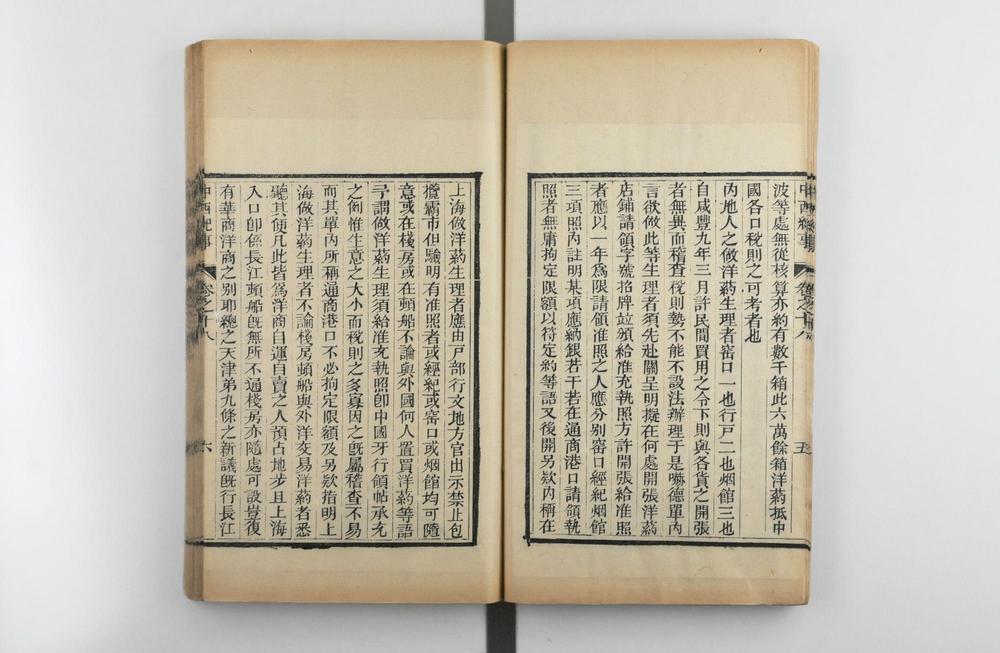 中西紀事
卷之十八
五
波等處無從核算亦約有數千箱此六萬餘箱洋葯抵中
國各口稅則之可考者也
內地人之做洋葯生理者窑口一也行戸二也烟館三也
自咸豐九年三月許民間買用之令下則與各貨之開張
者無異而稽查稅則勢不能不設法辦理于是嚹德單內
言欲做此等生理者須先赴關呈明擬在何處開張洋葯
店鋪請領字號招牌竝頒給准充執照方許開張給准照
者應以一年爲限請領准照之人應分别窑口經紀烟館
三項照內註明某項應納銀若干若在通商港口請領執
照者無庸拘定限額以符定約等語又後開另欵內稱在
上海做洋葯生理者應由戸部行文地方官出示禁止包
攬霸市但驗明有准照者或經紀或窑口或烟館均可隨
意或在棧房或在頓船不論與外國何人置買洋葯等語
予謂做洋葯生理須給准充執照卽中國牙行領帖承充
之例惟生意之大小而稅則之多寡因之旣屬稽查不易
而其單內所稱通商港口不必拘定限額及另欵指明上
海做洋葯生理者不論棧房頓船與外洋交易洋葯者悉
聽其便凡此皆爲洋商自運自賣之人預占地步且上海
入口卽係長江頓船旣無所不通棧房亦隨處可設豈復
有華商洋商之别耶總之天津弟九條之新議旣行長江
中西紀事
卷之十八
六